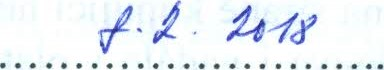 8. 2. 2018